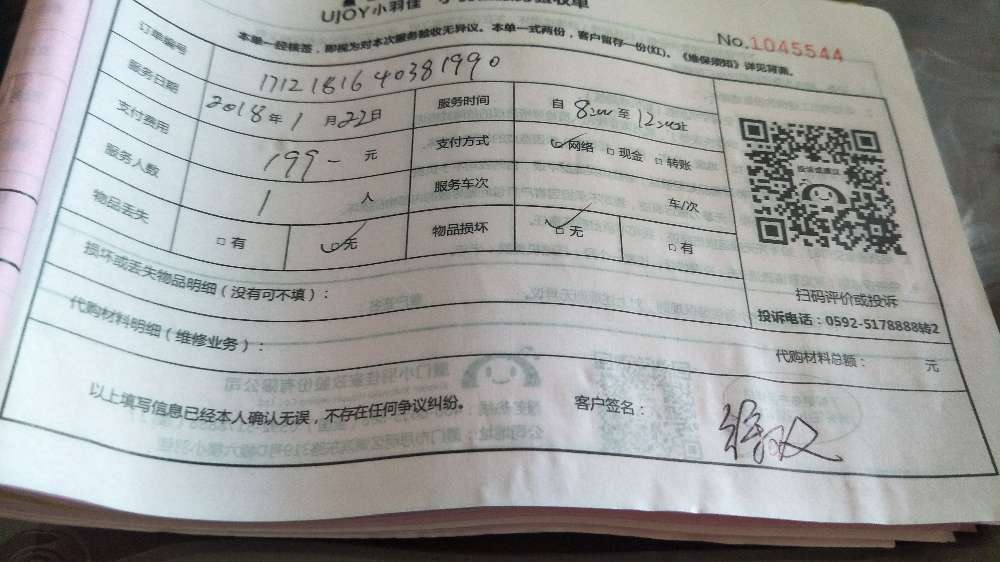 UJOY小羽佳
验收单
No.1045544
本单一经核签，即视为对本次服务验收无异议。本单一式两份，客户留存一份(红)。《维保须知》详见背面。
订单编号 1712181640381990
服务日期 2018年1月22日 服务时间 自8:00至12:00止
支付费用 199-元 支付方式 网络 现金 转账
服务人数 1 人 服务车次 车/次
物品丢失 有 无 物品损坏 无 有
投诉或建议
损坏或丢失物品明细（没有可不填）：
扫码评价或投诉
投诉电话：0592-5178888转2
代购材料明细（维修业务）：
代购材料总额： 元
以上填写信息已经本人确认无误，不存在任何争议纠纷。
客户签名：